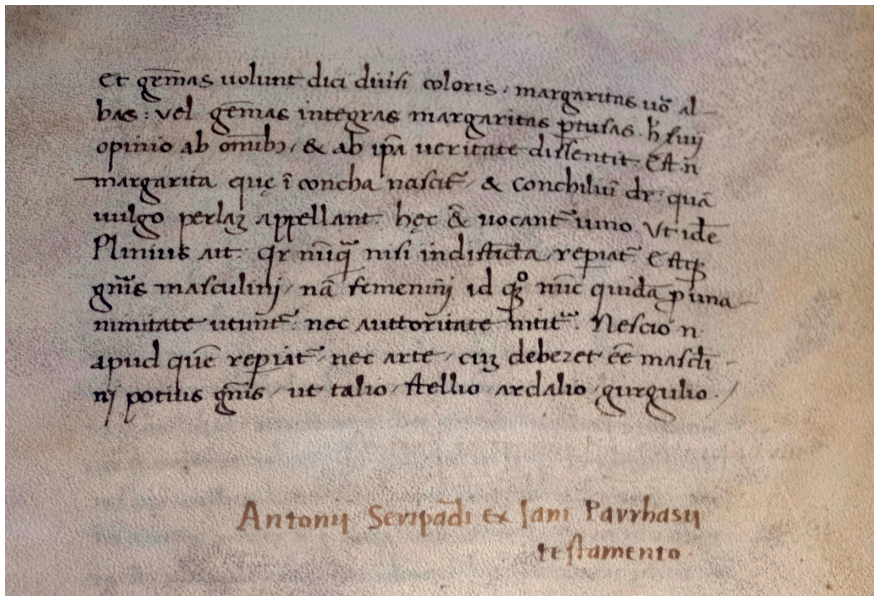 et gem̄as uolunt dici diuisi coloris, margaritas uo᷈ al
bas: vel gem̄as integras margaritas ꝑtusas. h̄ sui
opinio ab om̄ibꝫ, & ab ip̄a ueritate dissentit. Est. n̄
margarita quę ī concha nascit᷈, & conchiliuī dr̄. quā
uulgo perlaꝫ appellant. hęc & uocant᷈ unio Vt idē
Plinius ait. qr nūq̄ nisi indistīcta repiat᷈ Estqꝫ
gn̄is masculinj, nā femeninj id nūc quidā ꝓ una
nimitate utunt᷈. nec auttoritate nitit᷈. Nescio n̄.
apud quē repiāt᷈, nec arte, cuꝫ deberet eē masculi-
nj potius gn̄is, ut talio, stellio ardalio, gurgulio.
Antonij Seripādi ex Jani Parrhasij
testamento.